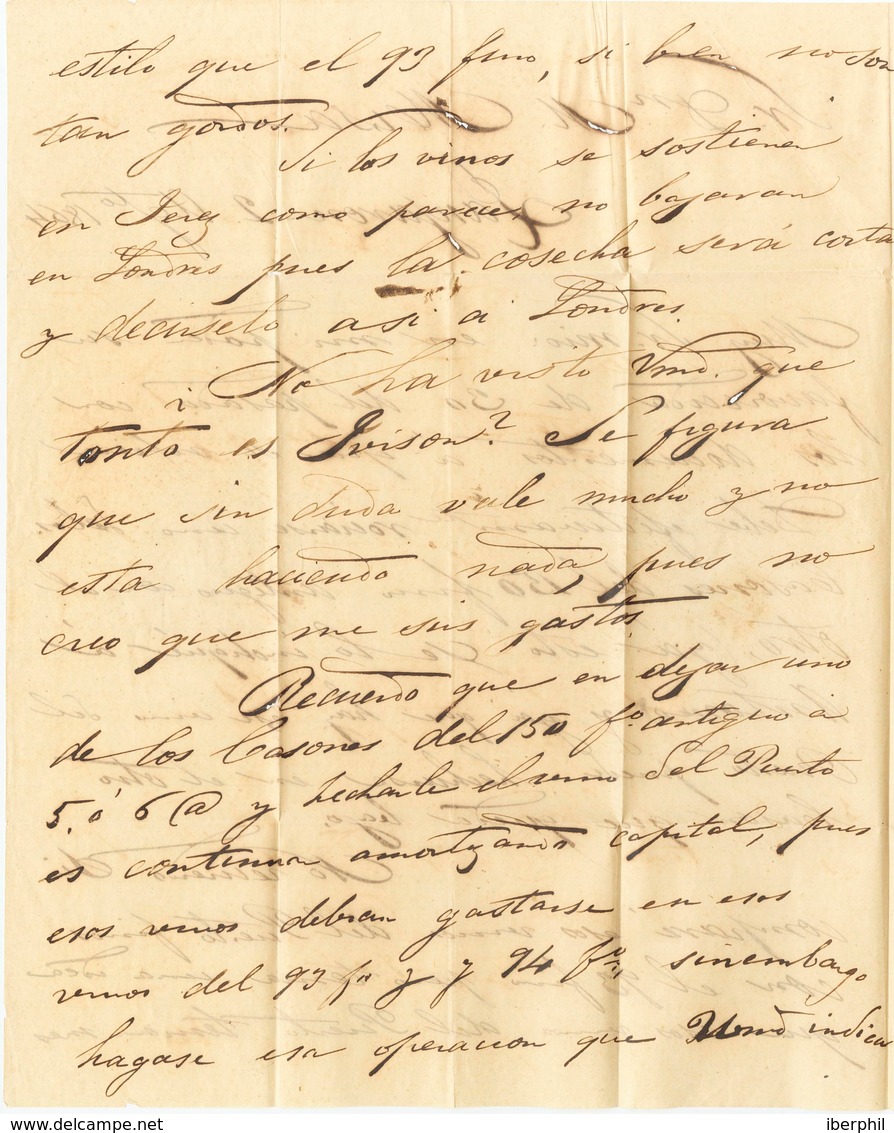 estilo que el 93 fino, si bien no son
tan gordos.
Si los vinos se sostienen
en Jerez como parece, no bajaran
en Londres pues la cosecha será corta
y decirselo asi a Londres.
¿No ha visto Vmd. que
tonto es Ivison? Se figura
que sin duda vale mucho y no
esta haciendo nada, pues no
creo que me sus gastos.
Recuerdo que en dejar uno
de los Casones del 150 fo. antiguo á
5. ó 6 @ y hecharle el vino del Puerto
es continuar amortizando capital, pues
esos vinos debian gastarse en esos
vinos del 93 fo y y 94 fo, sinembargo
hagase esa operacion que Vmd indica
www.delcampe.net
iberphil